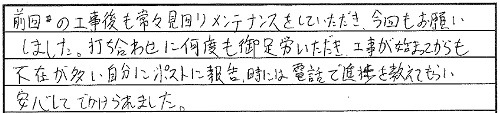 前回の工事後も常々見回りメンテナンスをしていただき、今回もお願い
しました。打ち合わせに何度も御足労いただき、工事が始まってからも
不在が多い自分にポストに報告、時には電話で進捗を教えてもらい
安心してでかけられました。